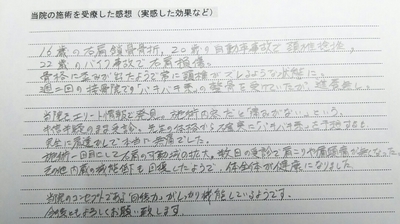 当院の施術を受療した感想（実感した効果など）
16歳の右肩鎖骨骨折、20歳の自動車事故で頚椎捻挫、
22歳のバイク事故で右肩損傷。
骨格に歪みが出たようで常に頚椎がズレるような状態に。
週二回の接骨院で"バキバキ系"の整骨を受けていたが
当院をエリート情報で発見。施術内容だと"痛みがない"という。
完全に
施術一日目にして右肩の可動域の拡大、数日の受診で肩こりや腰痛が無くなった。
その他内臓の機能も回復したようで、体全体が健康になりました。
当院のコンセプトである"自然力"がしっかり機能しているようです。
今後もよろしくお願い致します。